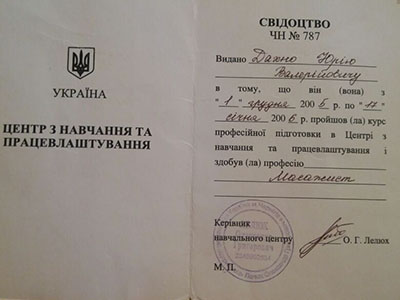 УКРАЇНА
ЦЕНТР З НАВЧАННЯ ТА
ПРАЦЕВЛАШТУВАННЯ
СВІДОЦТВО
ЧН № 787
Видано Дахно Юрію
Валерійовичу
в тому, що він (вона) з
"1" грудня 2005 р. по "17"
січня 2006 р. пройшов (ла) курс
професійної підготовки в Центрі з
навчання та працевлаштування і
здобув (ла) професію
Масажист
Керівник
навчального центру О. Г. Лелюх
М. П.